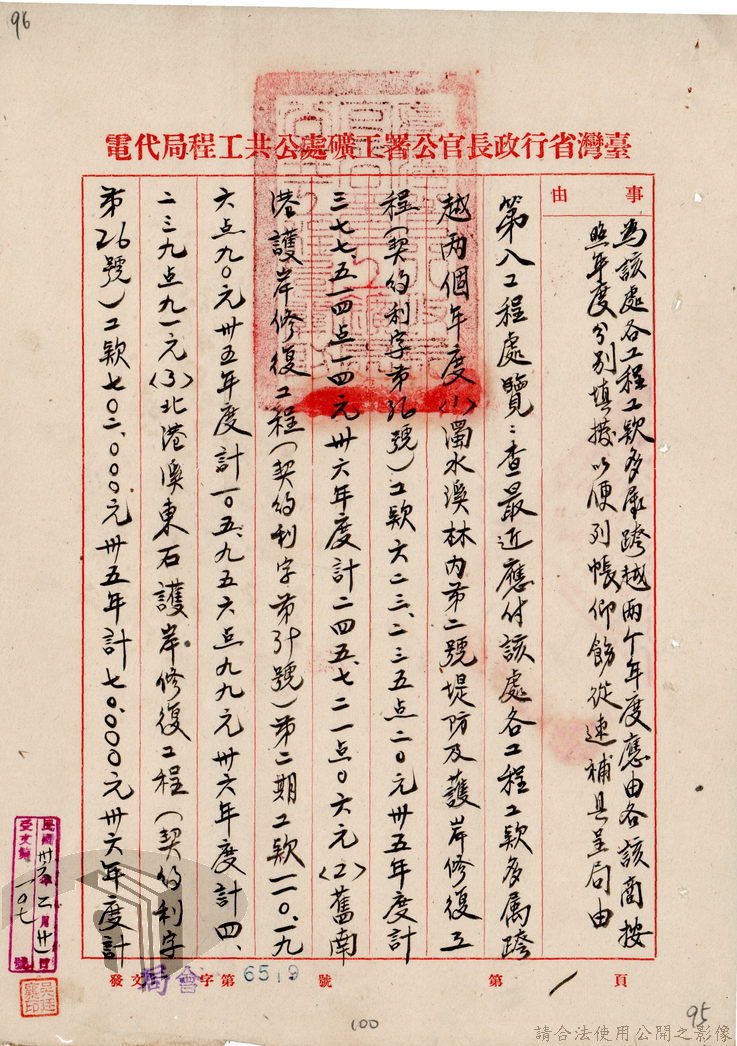 96
臺灣省行政長官公署工礦處公共工程局代電
事由
為該處各工程工款多屬跨越兩个年度應由各該商按
照年度分別填據以便列帳仰飭從速補具呈局由
第八工程處覽:查最近應付該處各工程工款多屬跨
越兩個年度(1)濁水溪林內第二號堤防及護岸修復工
程(契約利字第36號)工款六二三、二三五点二〇元卅五年度計
三七七、五一四点一四元卅六年度計二四五、七二一点〇六元(2)舊南
港護岸修復工程(契約利字第31號)第二期工款一一〇、一九
六点九〇元卅五年度計一〇五、九五六点九九元卅六年度計四、
二三九点九一元(3)北港溪東石護岸修復工程(契約利字
第26號)工款七〇二、〇〇〇元卅五年計七〇、〇〇〇元卅六年度計
第 1 頁
發文 會局 字第 6519 號
民國卅六年二月廿一日
受文號 一〇七
100
95
請合法使用公開之影像